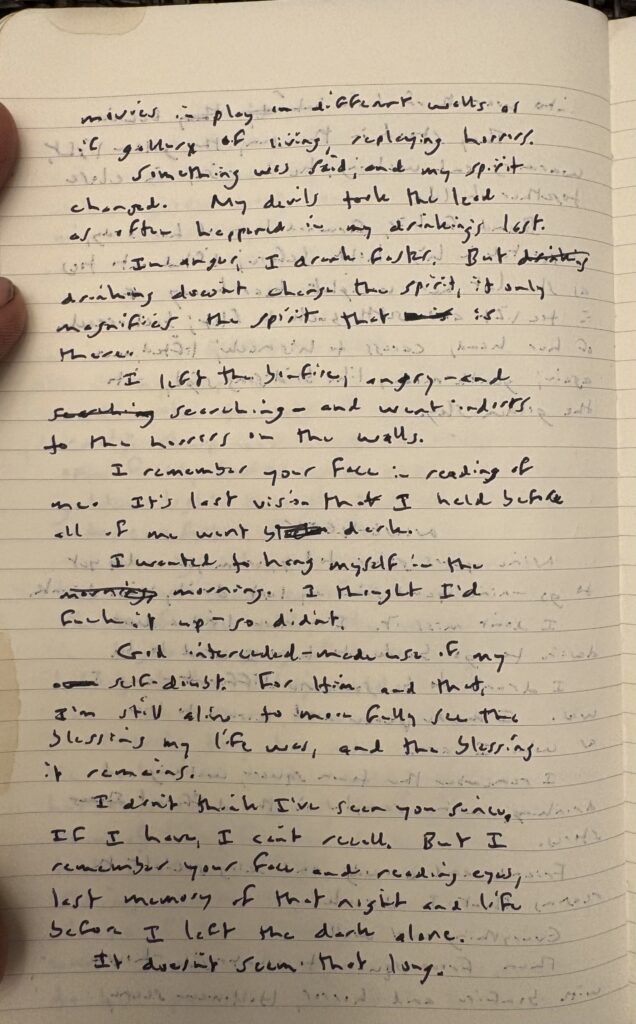 movies in play on different walls as
if gallery of living, replaying horrors.
Something was said, and my spirit
changed. My devils took the lead
as often happened in my drinking's last.
In anger, I drank faster. But drinking
drinking doesn't change the spirit, it only
magnifies the spirit that is
there.
I left the bonfire, angry - and
searching searching - and went indoors
to the horrors on the walls.
I remember your face in reading of
me. It's last vision that I held before
all of me went dark.
I wanted to hang myself in the
morning, morning. I thought I'd
fuck it up - so didn't.
God interceded - made use of my
self-doubt. For Him and that,
I'm still alive to more fully see the
blessing my life was, and the blessing
it remains.
I don't think I've seen you since,
If I have, I can't recall. But I
remember your face and reading eyes,
last memory of that night and life
before I left the dark alone.
It doesn't seem that long.